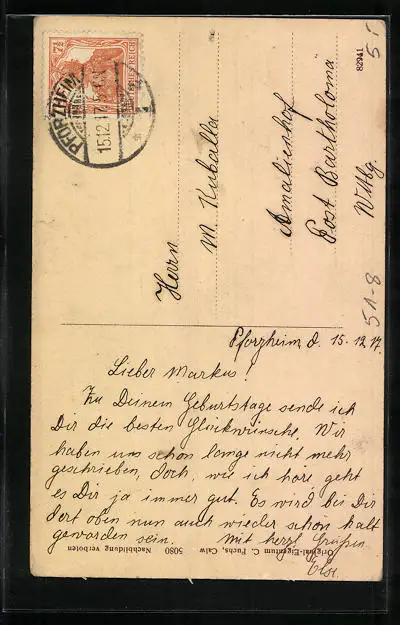 7½
DEUTSCHES REICH
PFORZHEIM
15.12.17.5-6 N.
*1
82941
51
Herrn
M. Kuballa
Amalienhof
Post Bartholomä
Wttbg.
51-8
Pforzheim, d. 15.12.17.
Lieber Markus!
Zu Deinem Geburtstage sende ich
Dir die besten Glückwünsche. Wir
haben uns schon lange nicht mehr
geschrieben, doch, wie ich höre, geht
es Dir ja immer gut. Es wird bei Dir
dort oben nun auch wieder schon kalt
geworden sein. Mit herzl. Grüßen
Else.
Original-Eigentum C. Fuchs, Calw 5080 Nachbildung verboten